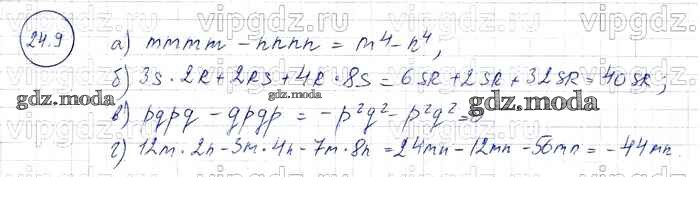 24.9
а) mmmm - nnnn = m⁴ - n⁴,
б) 3s · 2k + 2ks + 4k · 8s = 6sk + 2sk + 32sk = 40sk;
в) pqpq - qpqp = - p²q² - p²q² =
г) 12m · 2n - 3m · 4n - 7m · 8n = 24mn - 12mn - 56mn = - 44mn.
vipgdz.ru vipgdz.ru vipgdz.ru vipgdz.ru
gdz.moda gdz.moda gdz.moda